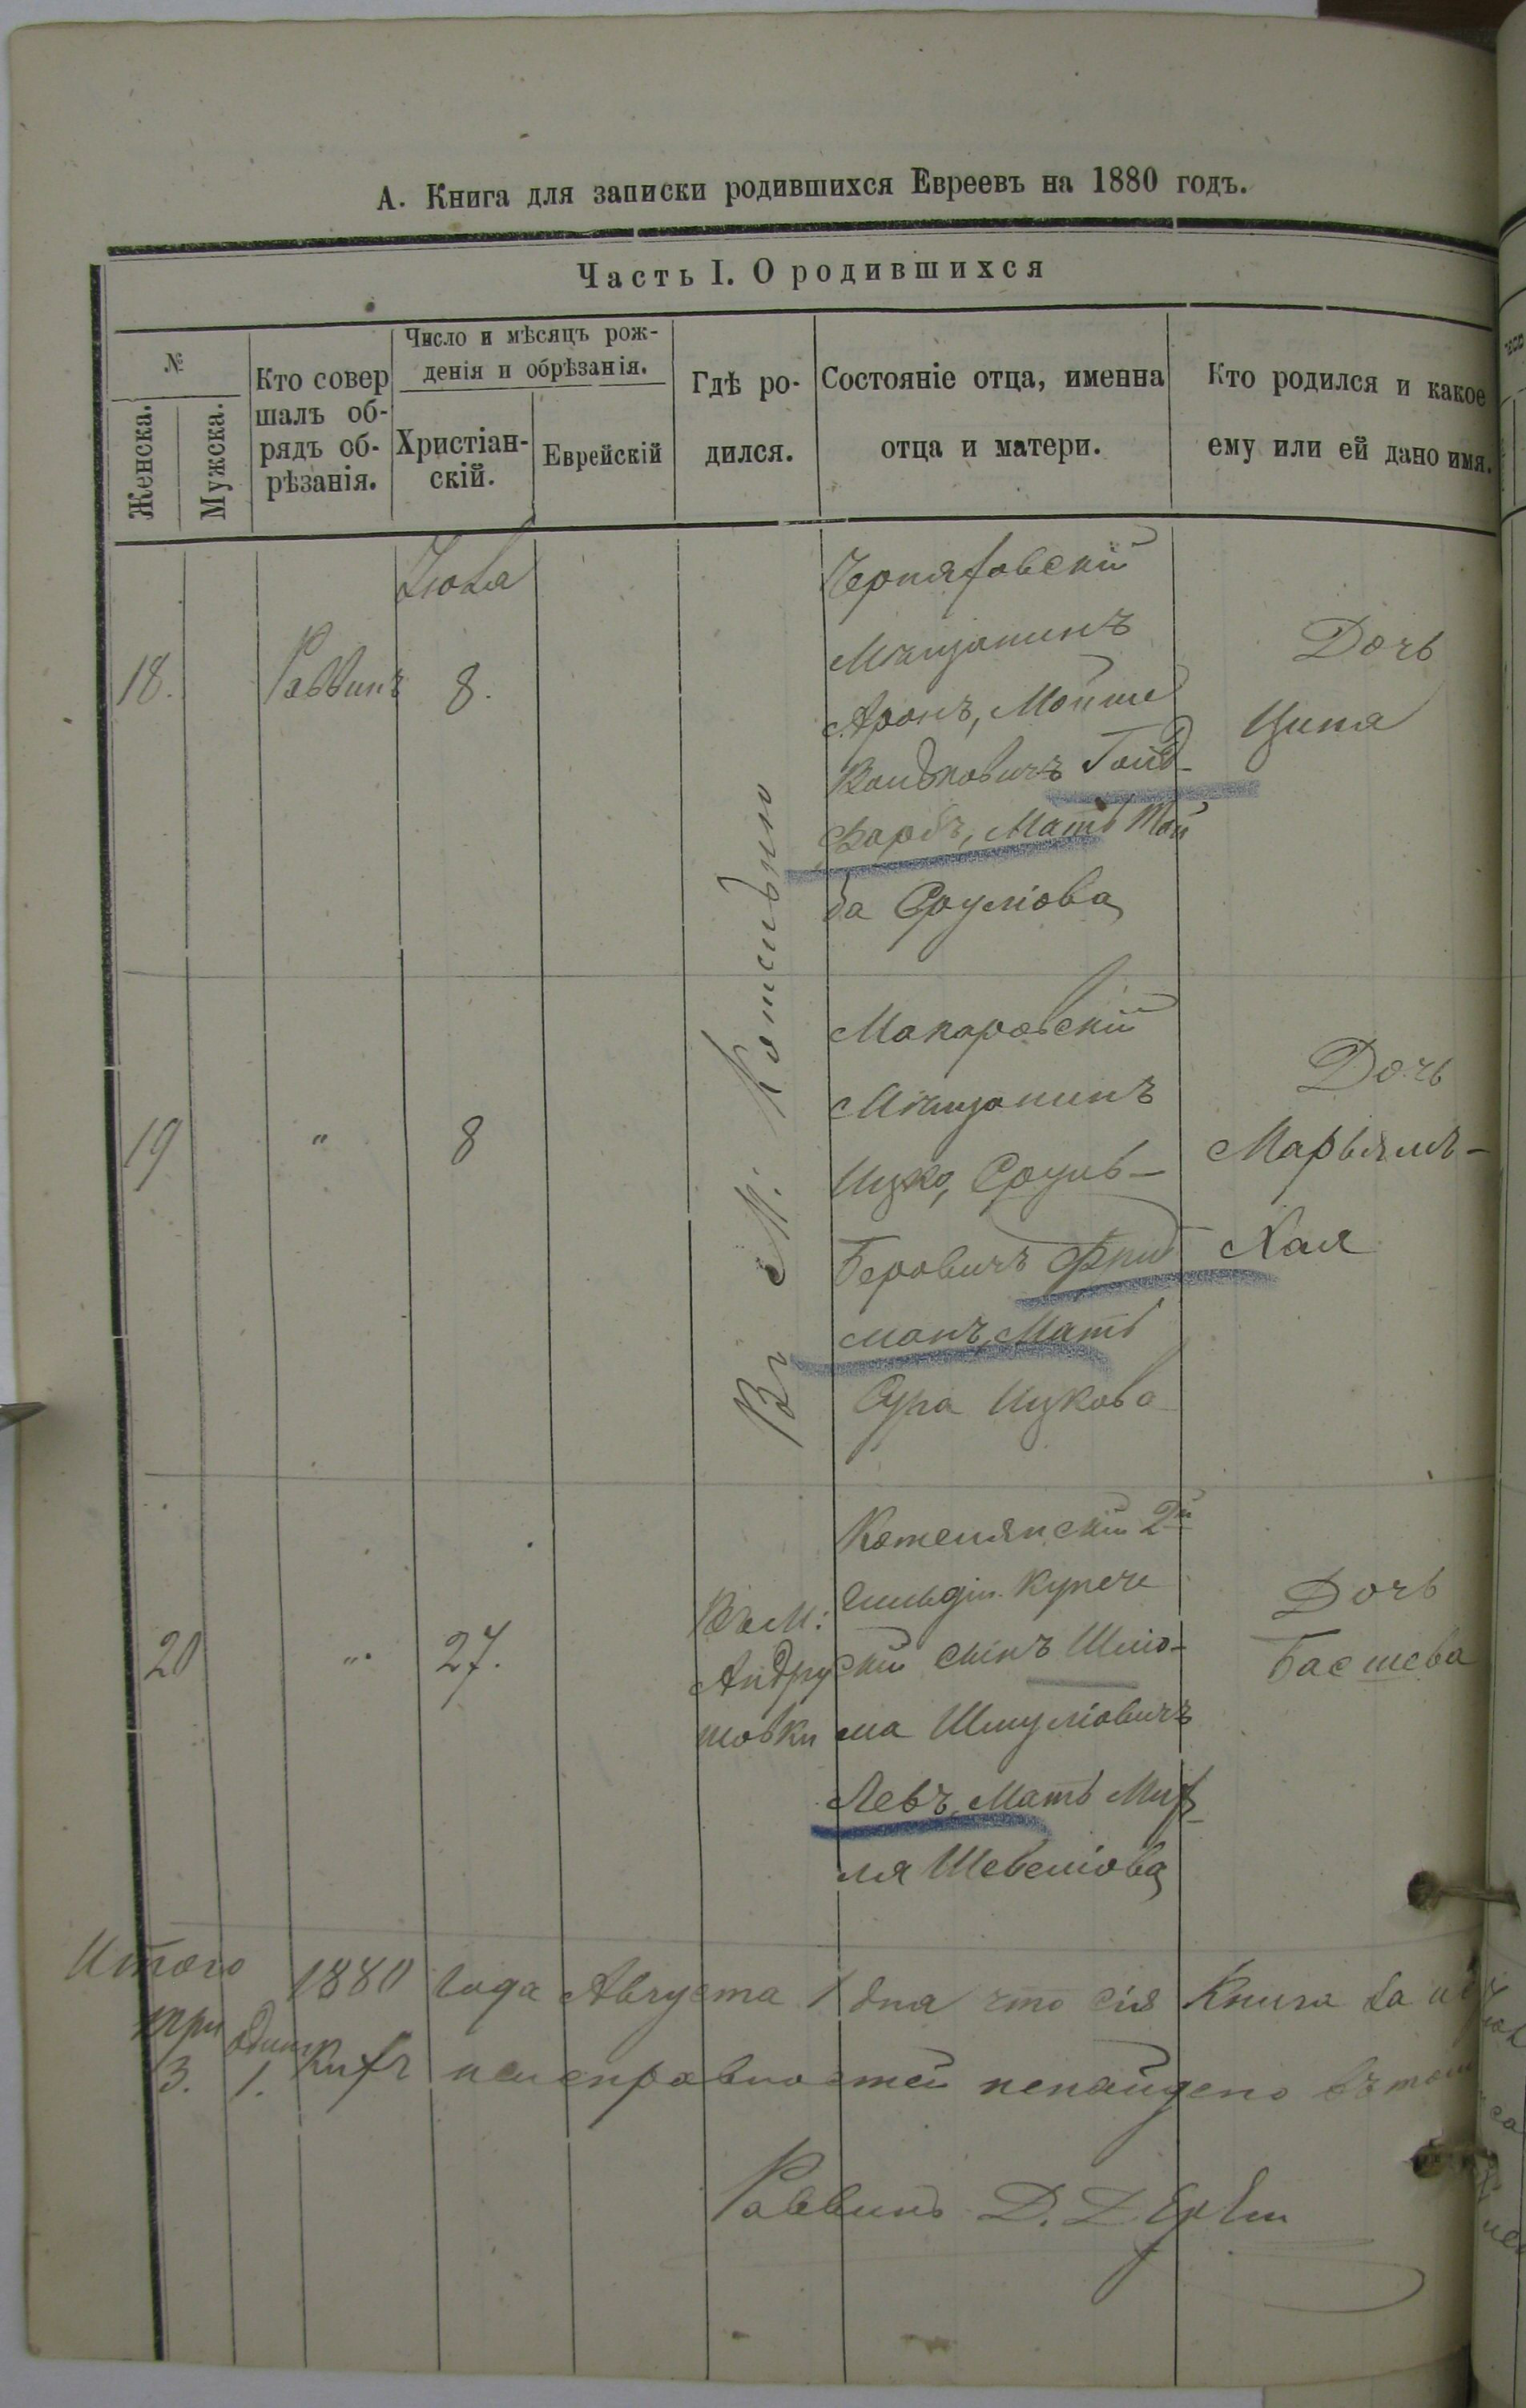 А. Книга для записки родившихся Евреевъ на 1880 годъ.
Часть I. О родившихся
№
Женска.
Мужска.
Кто совер
шалъ об-
рядъ об-
рѣзанія.
Число и мѣсяцъ рож-
денія и обрѣзанія.
Христіан-
скій.
Еврейскій
Гдѣ ро-
дился.
Состояніе отца, именна
отца и матери.
Кто родился и какое
ему или ей дано имя.
Іюля
18.
Раввинъ
8.
Черняховскій
Мѣщанинъ
Аронъ, Мойше
Гольд-
фарбъ, Мать Той
ба Срулiова
Дочь
Ципа
В М. Котельню
19
"
8
Макаровскій
Мѣщанинъ
Ицко, Сруль-
Беровичъ Фрид
манъ, Мать
Сура Ицкова
Дочь
Марьямъ-
Хая
20
"
27.
Въ М:
Андру
шовки
Котелянскій 2й
гильдіи купече
скій сынъ Шліо-
ма Шмуліовичъ
Левъ, Мать
Шевеліова
Дочь
Басшева
Итого
три
3.
одинъ
1.
1880 года Августа 1 дня что сія Книга
неисправностей ненайдено въ том
Раввинъ Д.